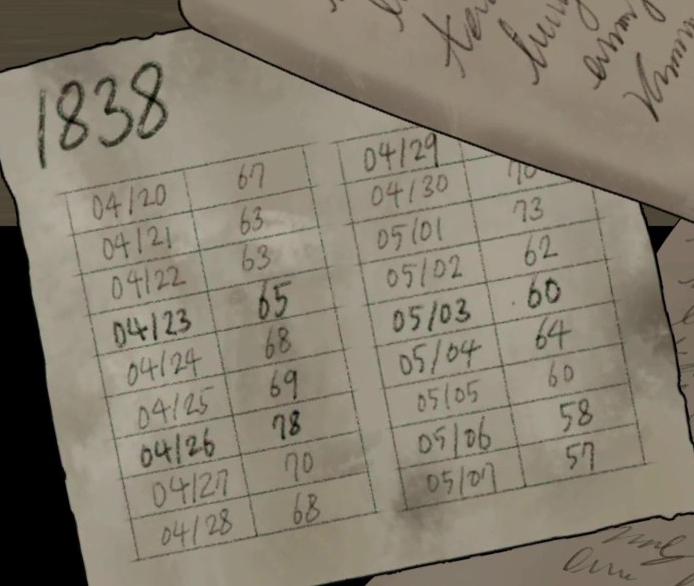 1838
04/20 67
04/21 63
04/22 63
04/23 65
04/24 68
04/25 69
04/26 78
04/27 70
04/28 68
04/29
04/30 70
05/01 73
05/02 62
05/03 60
05/04 64
05/05 60
05/06 58
05/07 57